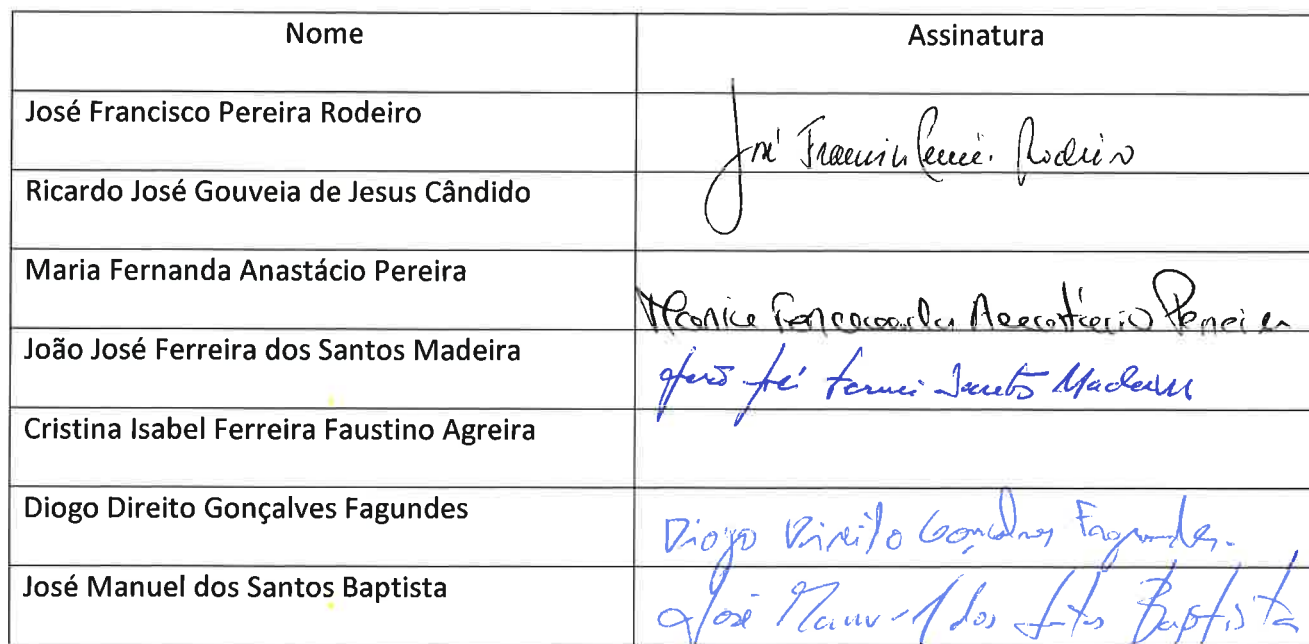 Nome Assinatura
José Francisco Pereira Rodeiro José Francisco Pereira Rodeiro
Ricardo José Gouveia de Jesus Cândido
Maria Fernanda Anastácio Pereira Maria Fernanda Anastácio Pereira
João José Ferreira dos Santos Madeira João José Ferreira Santos Madeira
Cristina Isabel Ferreira Faustino Agreira
Diogo Direito Gonçalves Fagundes Diogo Direito Gonçalves Fagundes.
José Manuel dos Santos Baptista José Manuel dos Santos Baptista